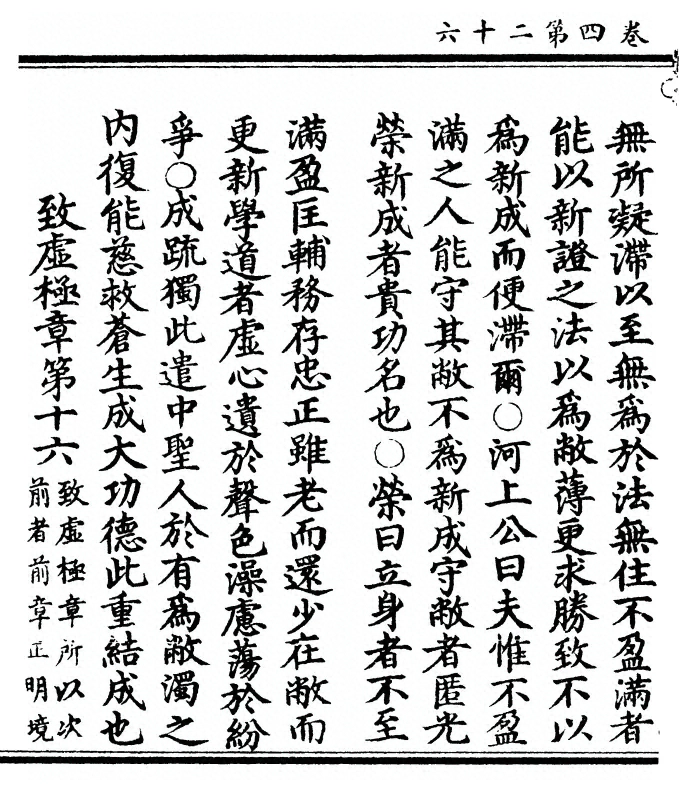 卷四第二十六
無所凝滯以至無爲於法無住不盈滿者
能以新證之法以爲敝薄更求勝致不以
爲新成而便滯爾○河上公曰夫惟不盈
滿之人能守其敝不爲新成守敝者匿光
榮新成者貴功名也○榮曰立身者不至
滿盈匡輔務存忠正雖老而還少在敝而
更新學道者虛心遺於聲色澡慮蕩於紛
爭○成疏獨此遣中聖人於有爲敝濁之
內復能慈救蒼生成大功德此重結成也
致虛極章第十六致虛極章所以次
前者前章正明境